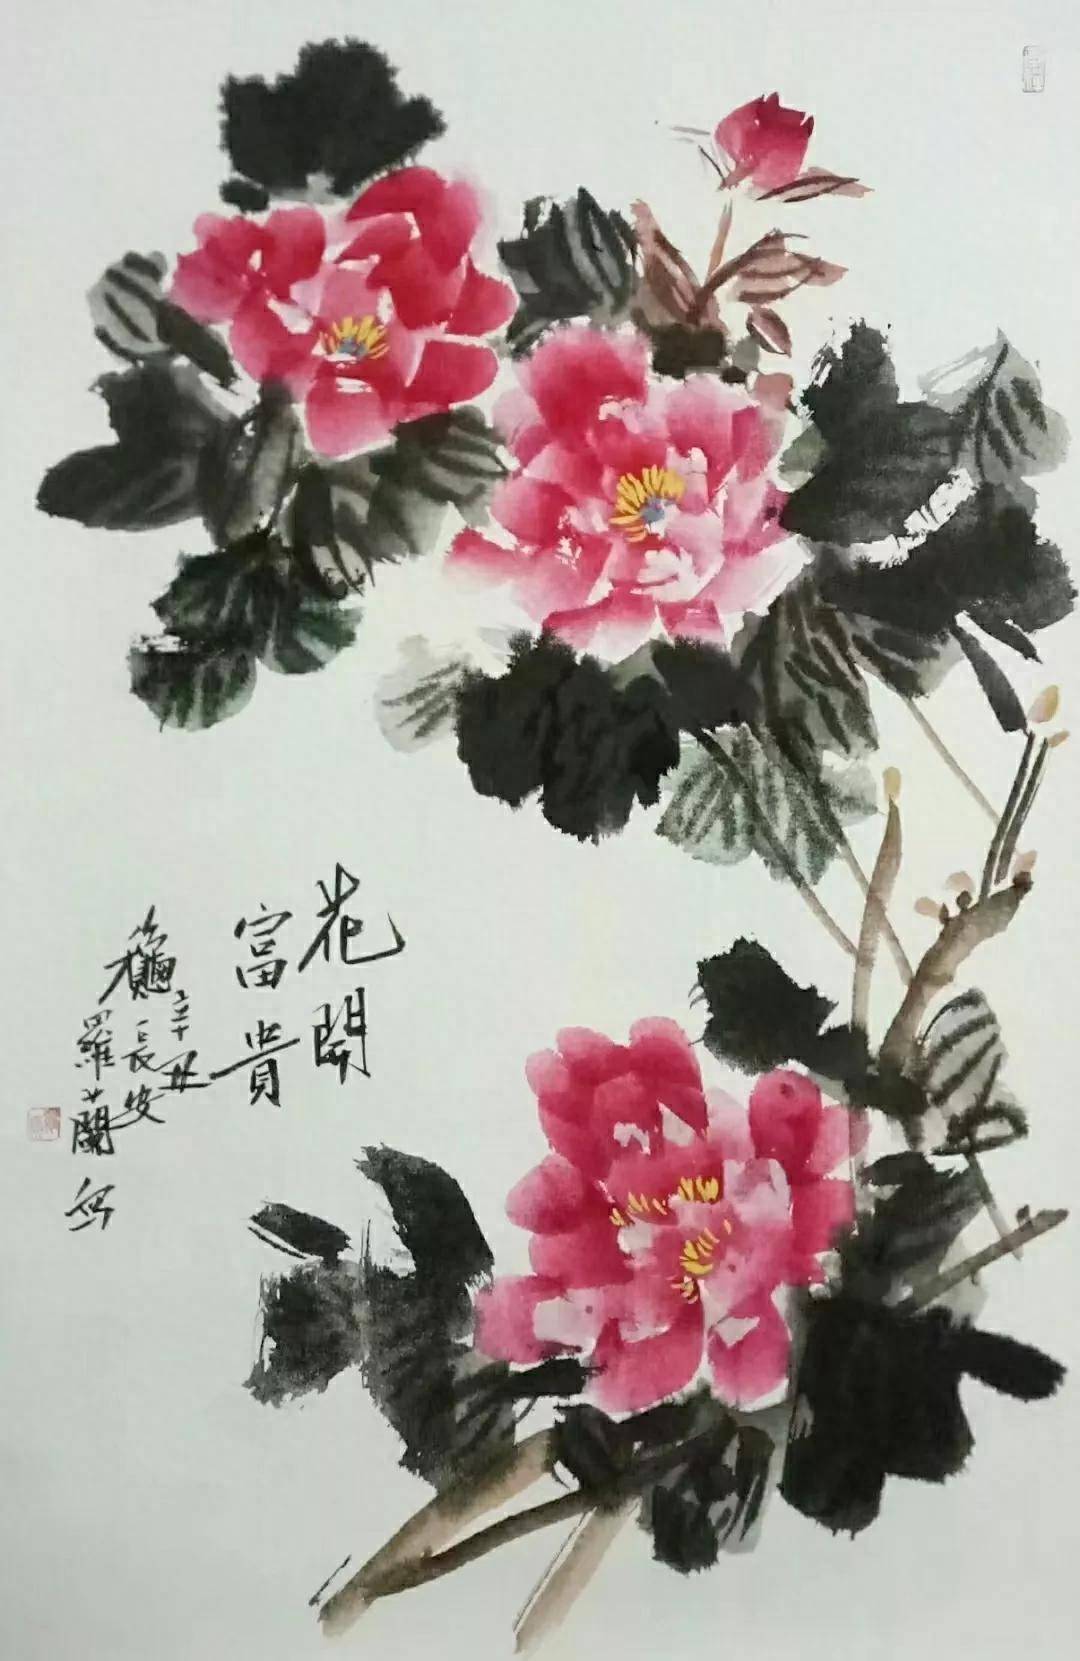 花開
富貴
辛丑
龝長安
羅蘭写